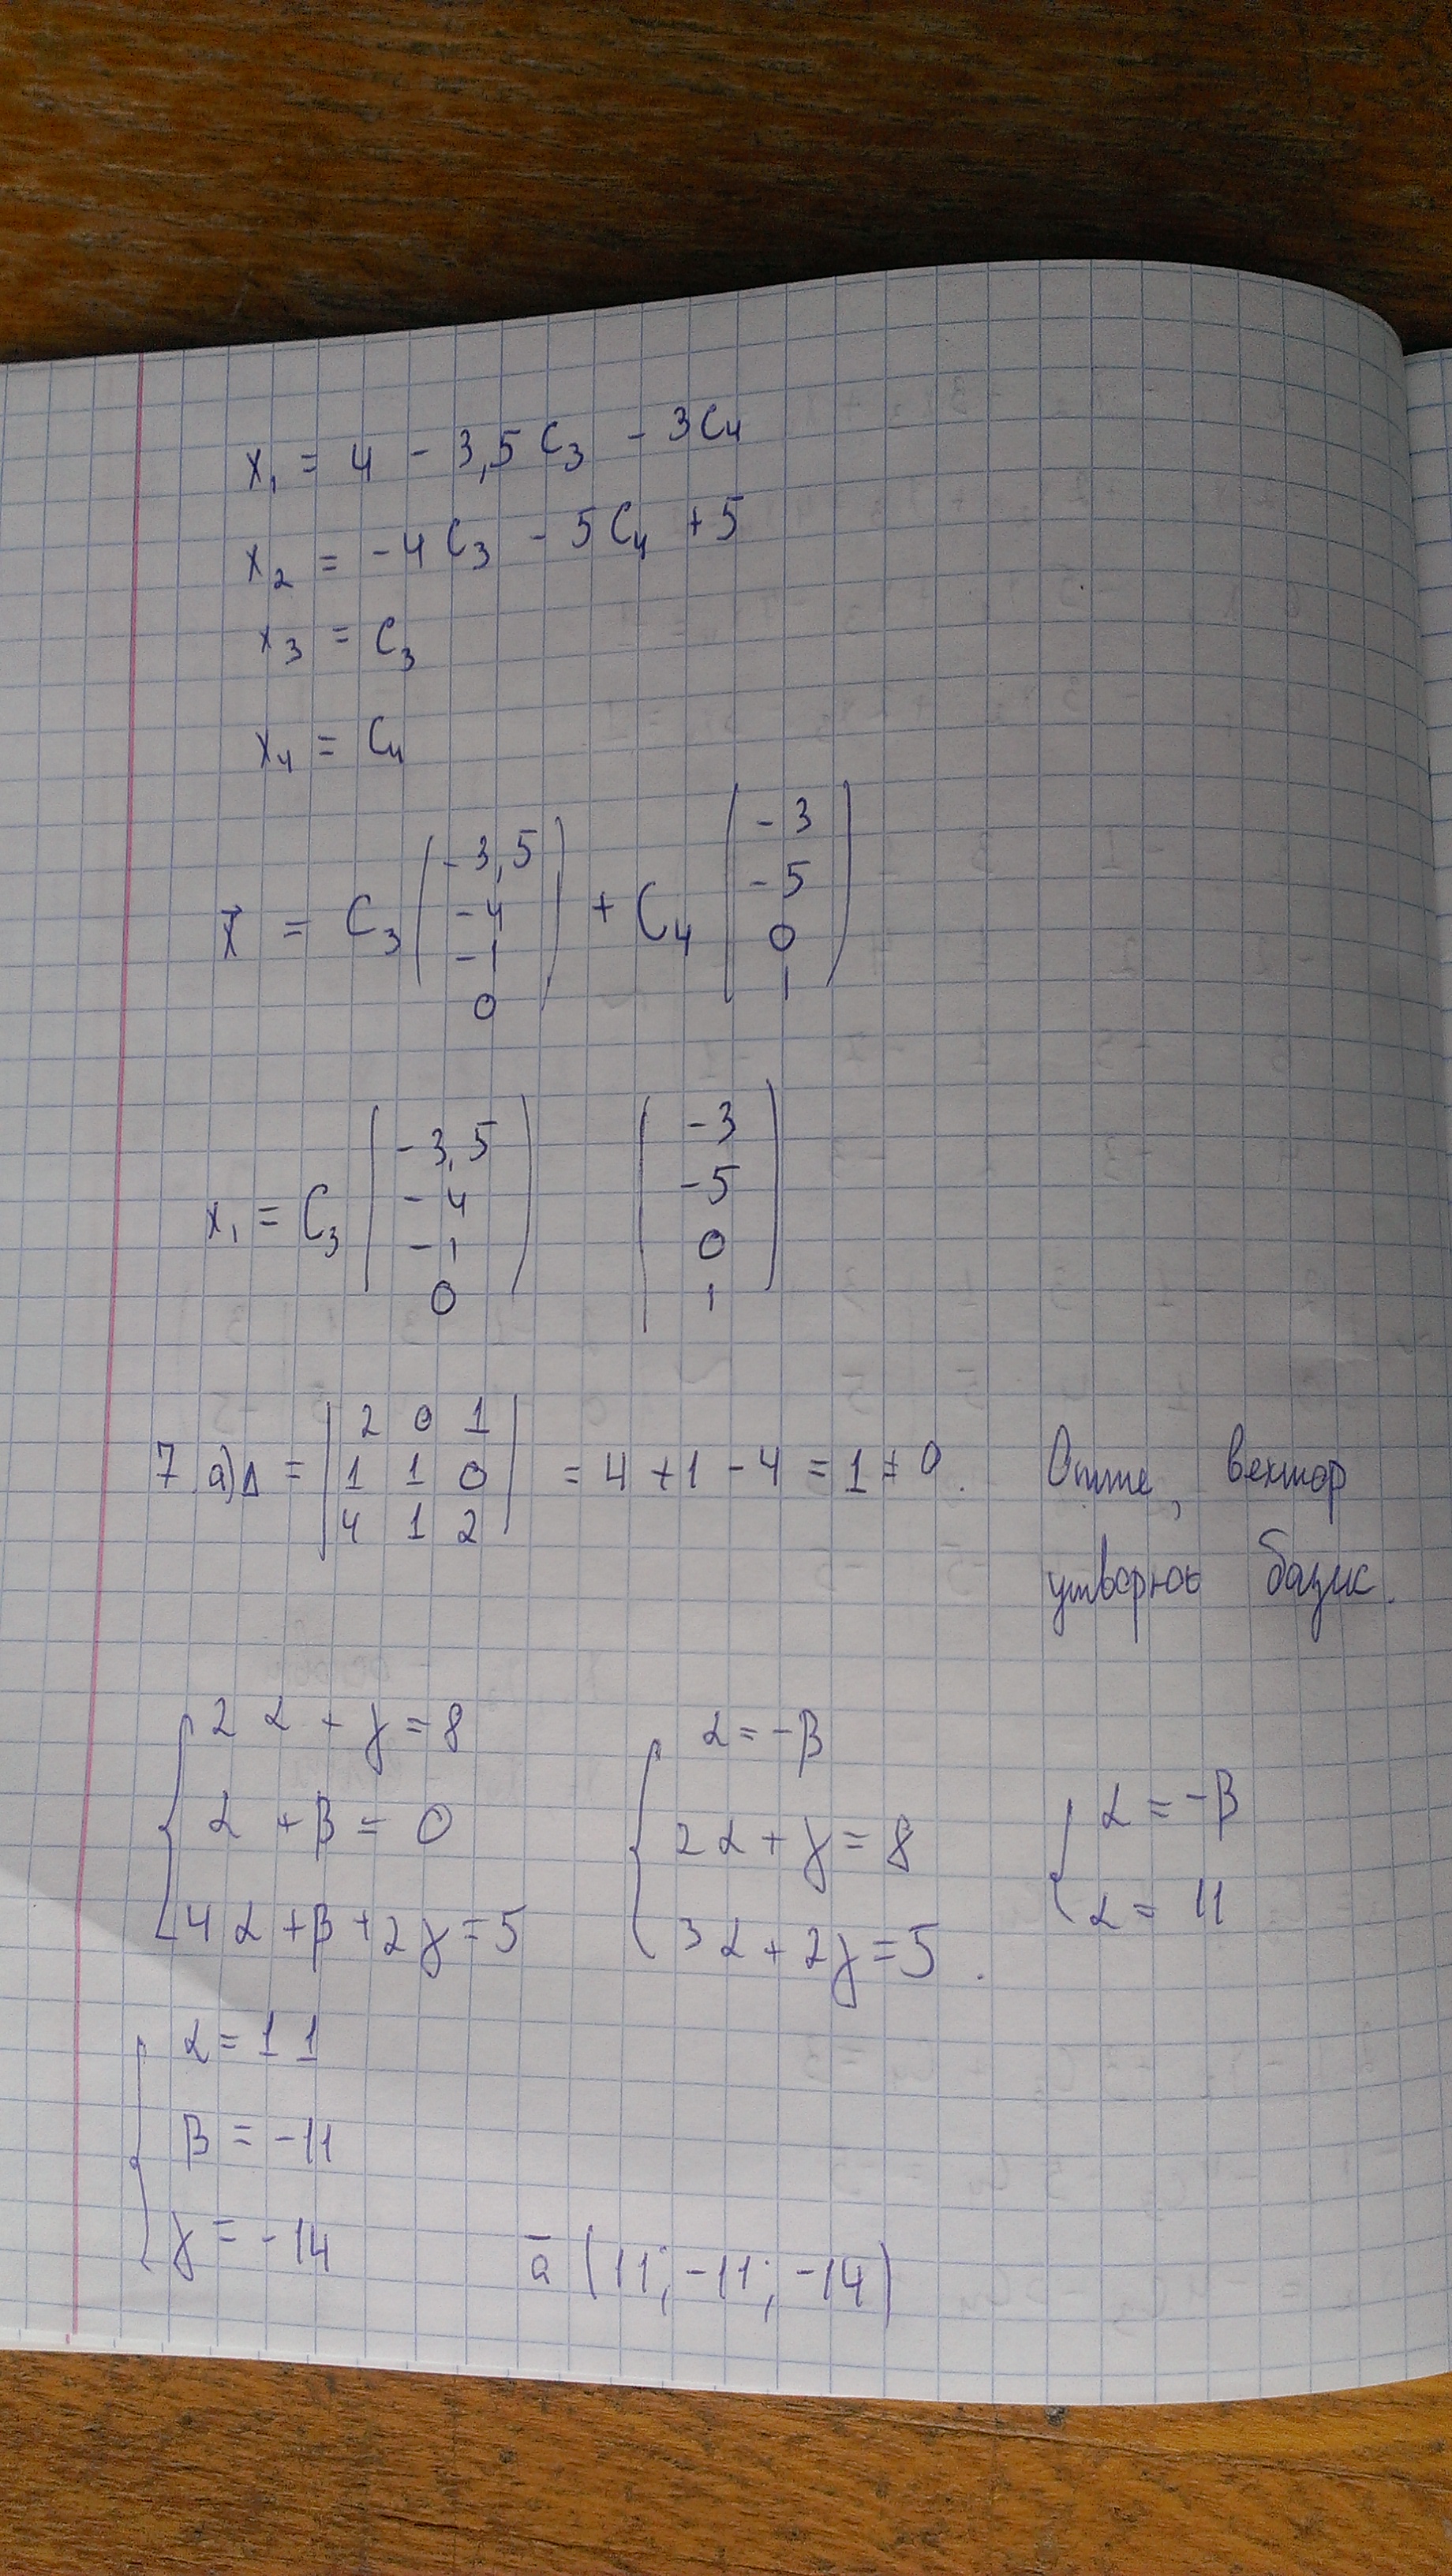 x₁ = 4 - 3,5 C₃ - 3C₄
x₂ = -4 C₃ - 5C₄ + 5
x₃ = C₃
x₄ = C₄
x⃗ = C₃ (-3,5 -4 -1 0) + C₄ (-3 -5 0 1)
x₁ = C₃ (-3,5 -4 -1 0) (-3 -5 0 1)
7 a) Δ = |2 0 1 1 1 0 4 1 2| = 4 + 1 - 4 = 1 ≠ 0. Отже, вектор
утворює базис.
{2α + γ = 8
α + β = 0
4α + β + 2γ = 5
{α = -β
2α + γ = 8
3α + 2γ = 5.
{α = -β
α = 11
{α = 11
β = -11
γ = -14
a̅ (11; -11; -14)